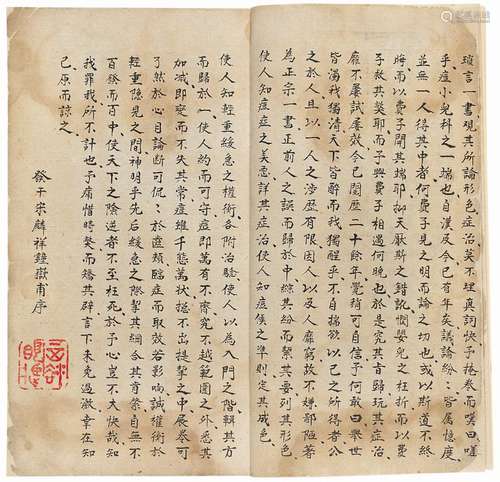 瑣言一書現其所論形色症治莫不理真詞快予捲卷而嘆曰嗟
乎痘小兒科之一端也自漢及今已有年矣議論紛紛皆属憶度
並無一人得其中者何費子見之明而論之切也或以斯道不終
晦而以費子開其端耶抑天厭斯之錯訛憫嬰兒之枉折而以費
子救其獘耶而予與費子相遇何晚也於是究其音歸玩其症治
靡不屢試屢效今已閱歷二十餘年覺稍可自信予何敢曰舉世
皆濁我獨清天下皆醉而我獨醒乎不自揣欲以己之所得者公
之於人且以一人之涉歷有限因人以及人靡窮故不嫌鄙陋著
為正宗一書正前人之誤而歸於中綜其紛而禀其要列其形色
使人知痘症之美惡詳其症治使人知痘候之準則定其色
使人知輕重緩急之權衡各附治驗使人以為入門之階輯其方
而歸於一使人約而可守症即萬有不齊究不越範圍之外悉其
加減即变而不失其常症雖千態萬狀揔不出提挈之中展卷可
了然於心目論斷可侃侃於齒頰臨症而取效若影響誠權衡於
輕重隱見之間神明乎先后緩急之際挈其綱合其自無不
百發而百中使天下之陰逆者不至枉死於予心豈不大快哉知
我罪我所不計也予庸惜時獘而矯其辟言下未免過激幸在知
己原而諒之
宋麟祥鍾嶽甫序